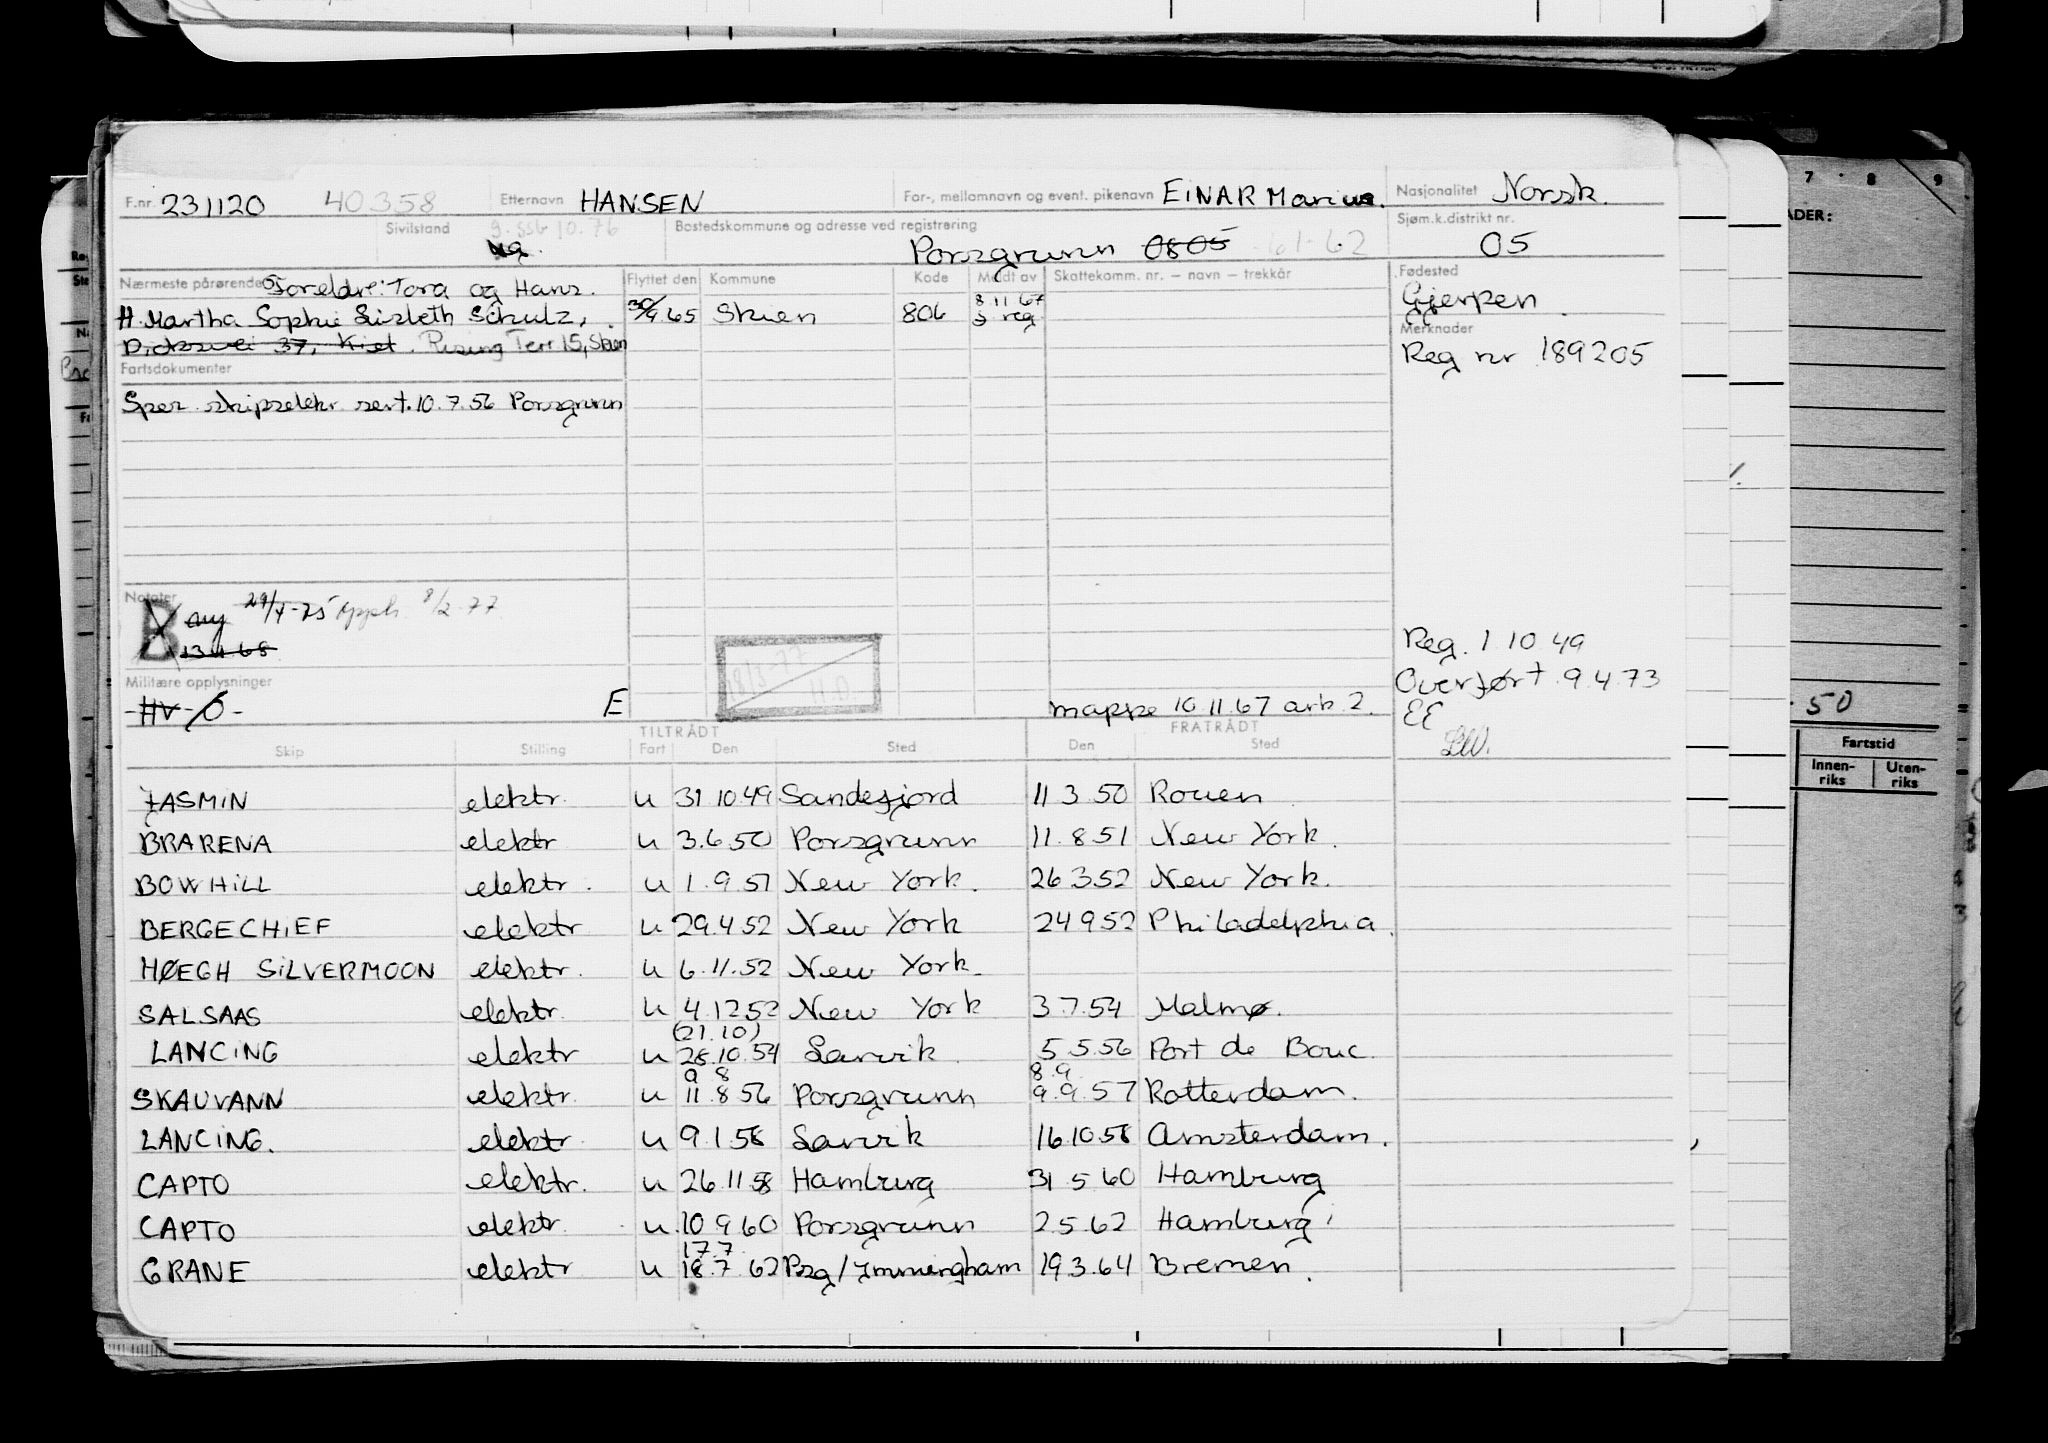 F.nr. 231120 40358 Etternavn HANSEN For-, mellomnavn og event. pikenavn EINAR Marius. Nasjonalitet Norsk.
Sivilstand ug. Bostedskommune og adresse ved registrering Porsgrunn 0805 61-62 Sjøm.k.distrikt nr. 05
Nærmeste pårørende Foreldre: Tora og Hans. Flyttet den Kommune Kode Meldt av Skattekomm. nr. — navn — trekkår Fødested
H. Martha Sophie Lisbeth Schulz, 30/9.65 Skien 806 8.11.67 s reg. Gjerpen.
37, Kiel. Rising Terr 15, Skien Merknader
Reg nr 189205
Fartsdokumenter
Spes. skipselektr. sert. 10.7.56 Porsgrunn
Notater
B 29/4-75 8/2-77
13 11 68
Reg. 1 10 49
18/3-77
H.D.
Militære opplysninger
Overført 9.4.73
HV-Ö- E mappe 10.11.67 ark 2. EE
LW.
TILTRÅDT FRATRÅDT
Skip Stilling Fart Den Sted Den Sted
JASMIN elektr. u 31 10 49 Sandefjord 11 3.50 Rouen
BRARENA elektr u 3.6 50 Porsgrunn 11.8.51 New York.
BOWHILL elektr. u 1.9.51 New York. 26 3.52 New York.
BERGECHIEF elektr u 29.4 52 New York 24 9.52 Philadelphia.
HØEGH SILVERMOON elektr. u 6.11.52 New York.
SALSAAS elektr. u 4.12 52 New York 3.7.54 Malmø.
(21.10)
LANCING elektr u 26.10.54 Larvik 5.5.56 Port de Bouc.
9 8 8.9
SKAUVANN elektr. u 11.8 56 Porsgrunn 9.9.57 Rotterdam.
LANCING. elektr. u 9.1.58 Larvik 16.10.58 Amsterdam.
CAPTO elektr. u 26.11.58 Hamburg 31 5 60 Hamburg
CAPTO elektr. u 10 9 60 Porsgrunn 2.5.62 Hamburg
17.7
GRANE elektr u 18.7.62 Psg/Immingham 19.3.64 Bremen.
7 8 9
50
Fartstid
Innen-riks Uten-riks